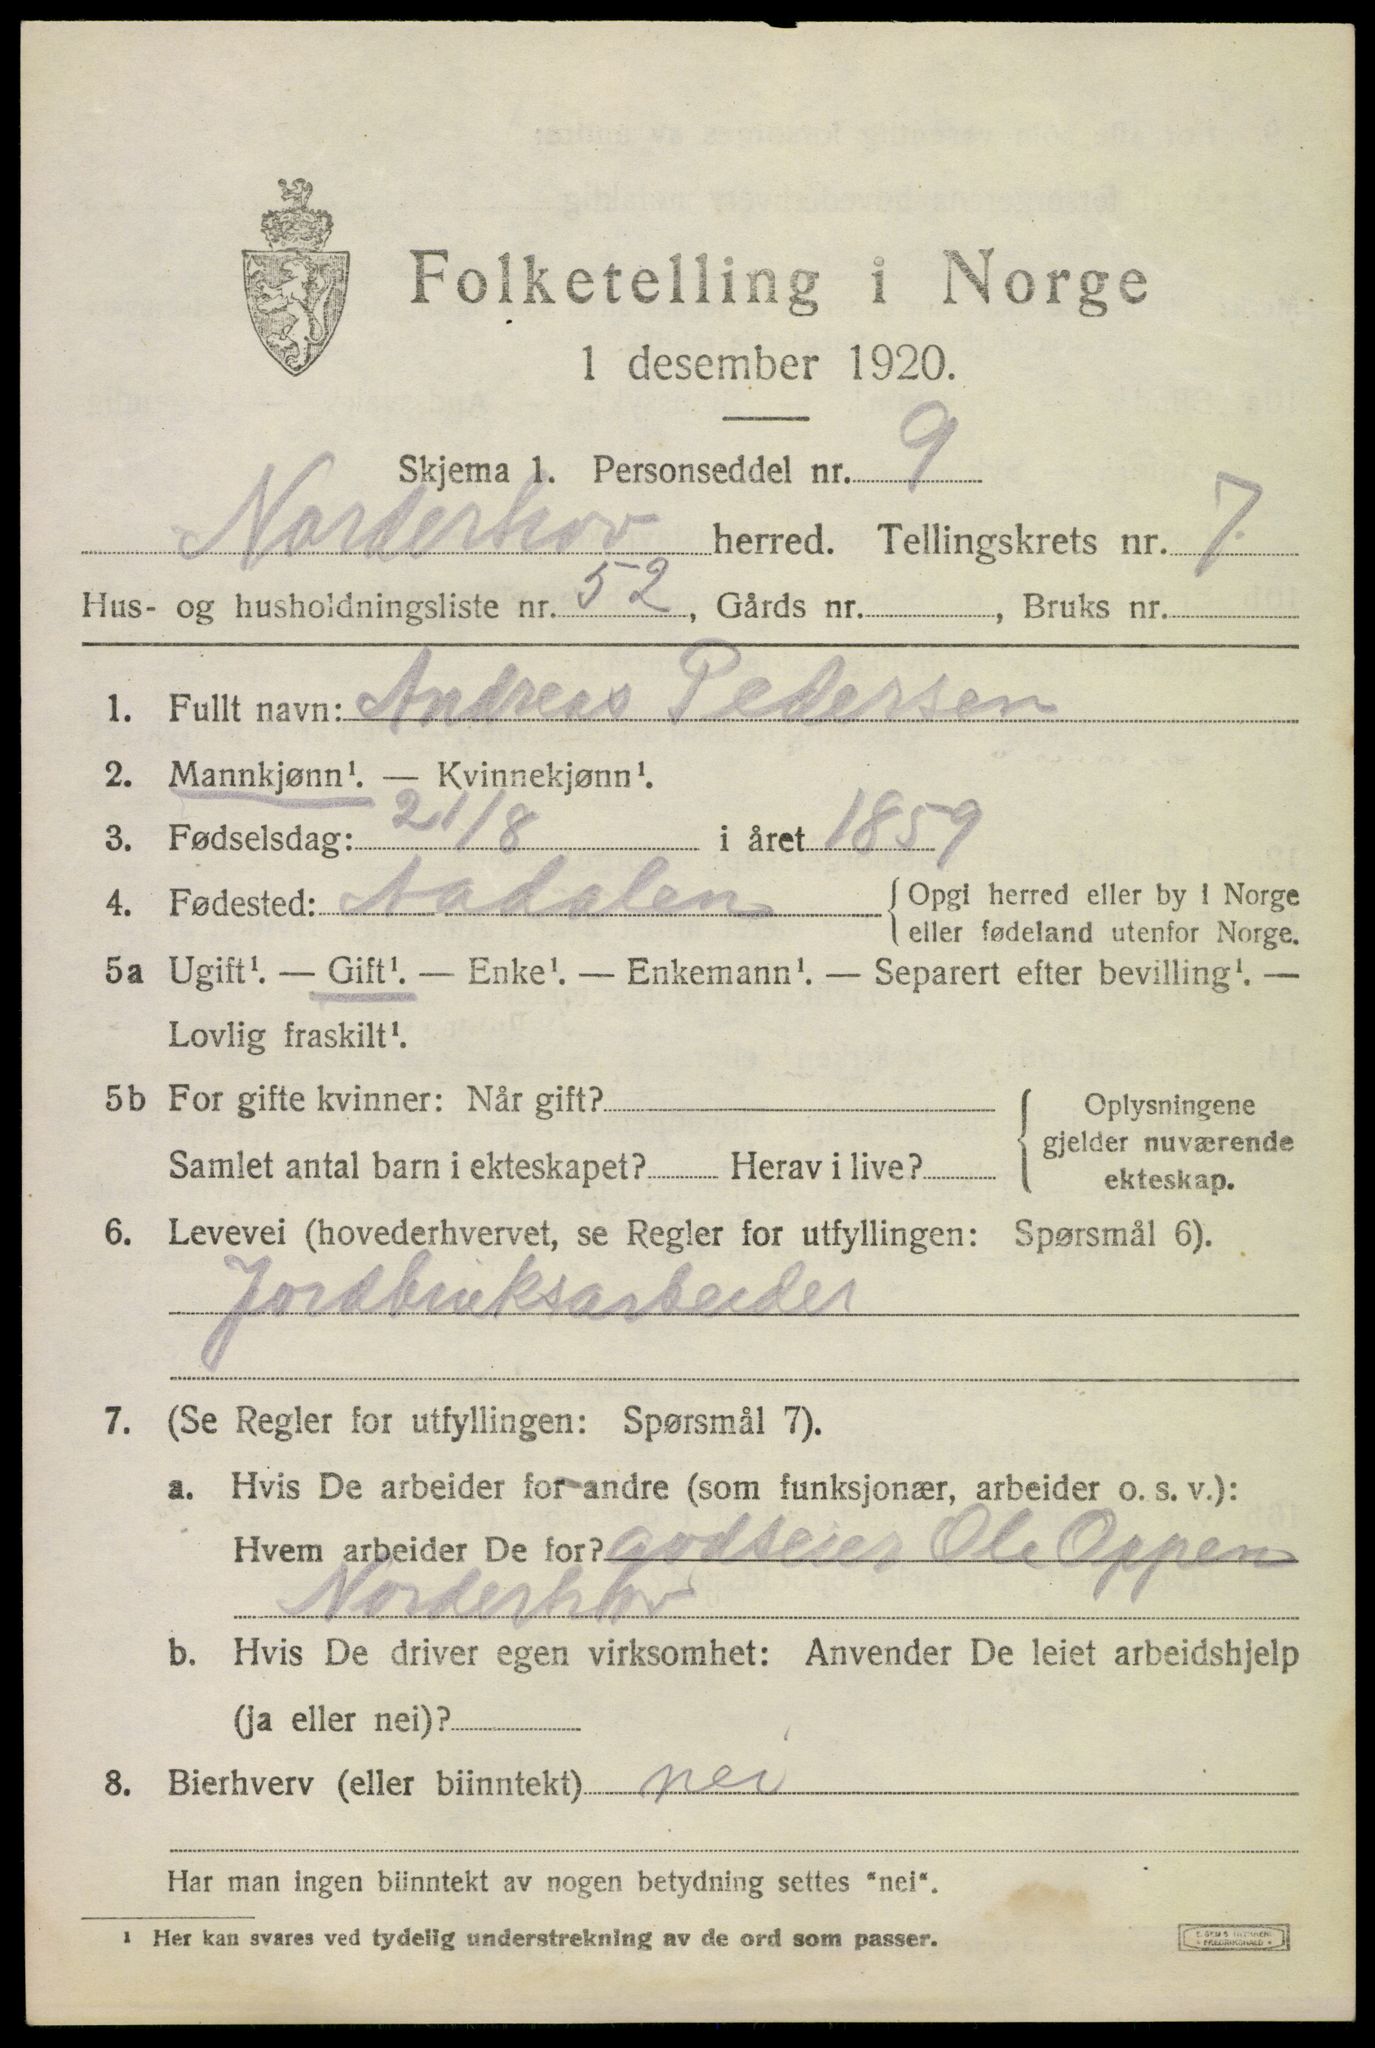 Folketelling i Norge
1 desember 1920.
Skjema 1. Personseddel nr. 9
Norderhov herred. Tellingskrets nr. 7.
Hus- og husholdningsliste nr. 52, Gårds nr. , Bruks nr.
1. Fullt navn: Andreas Pedersen
2. Mannkjønn¹. — Kvinnekjønn¹.
3. Fødselsdag: 21/8 i året 1859
4. Fødested: Aadalen {Opgi herred eller by i Norge
eller fødeland utenfor Norge.
5a Ugift¹. — Gift¹. — Enke¹. — Enkemann¹. — Separert efter bevilling¹. —
Lovlig fraskilt¹.
5b For gifte kvinner: Når gift? { Oplysningene
gjelder nuværende
Samlet antal barn i ekteskapet? Herav i live? ekteskap.
6. Levevei (hovederhvervet, se Regler for utfyllingen: Spørsmål 6).
Jordbruksarbeider
7. (Se Regler for utfyllingen: Spørsmål 7).
a. Hvis De arbeider for andre (som funksjonær, arbeider o. s. v.):
Hvem arbeider De for? godseier Ole Oppen
Norderhhov
b. Hvis De driver egen virksomhet: Anvender De leiet arbeidshjelp
(ja eller nei)?
8. Bierhverv (eller biinntekt) nei
Har man ingen biinntekt av nogen betydning settes "nei".
¹ Her kan svares ved tydelig understrekning av de ord som passer.